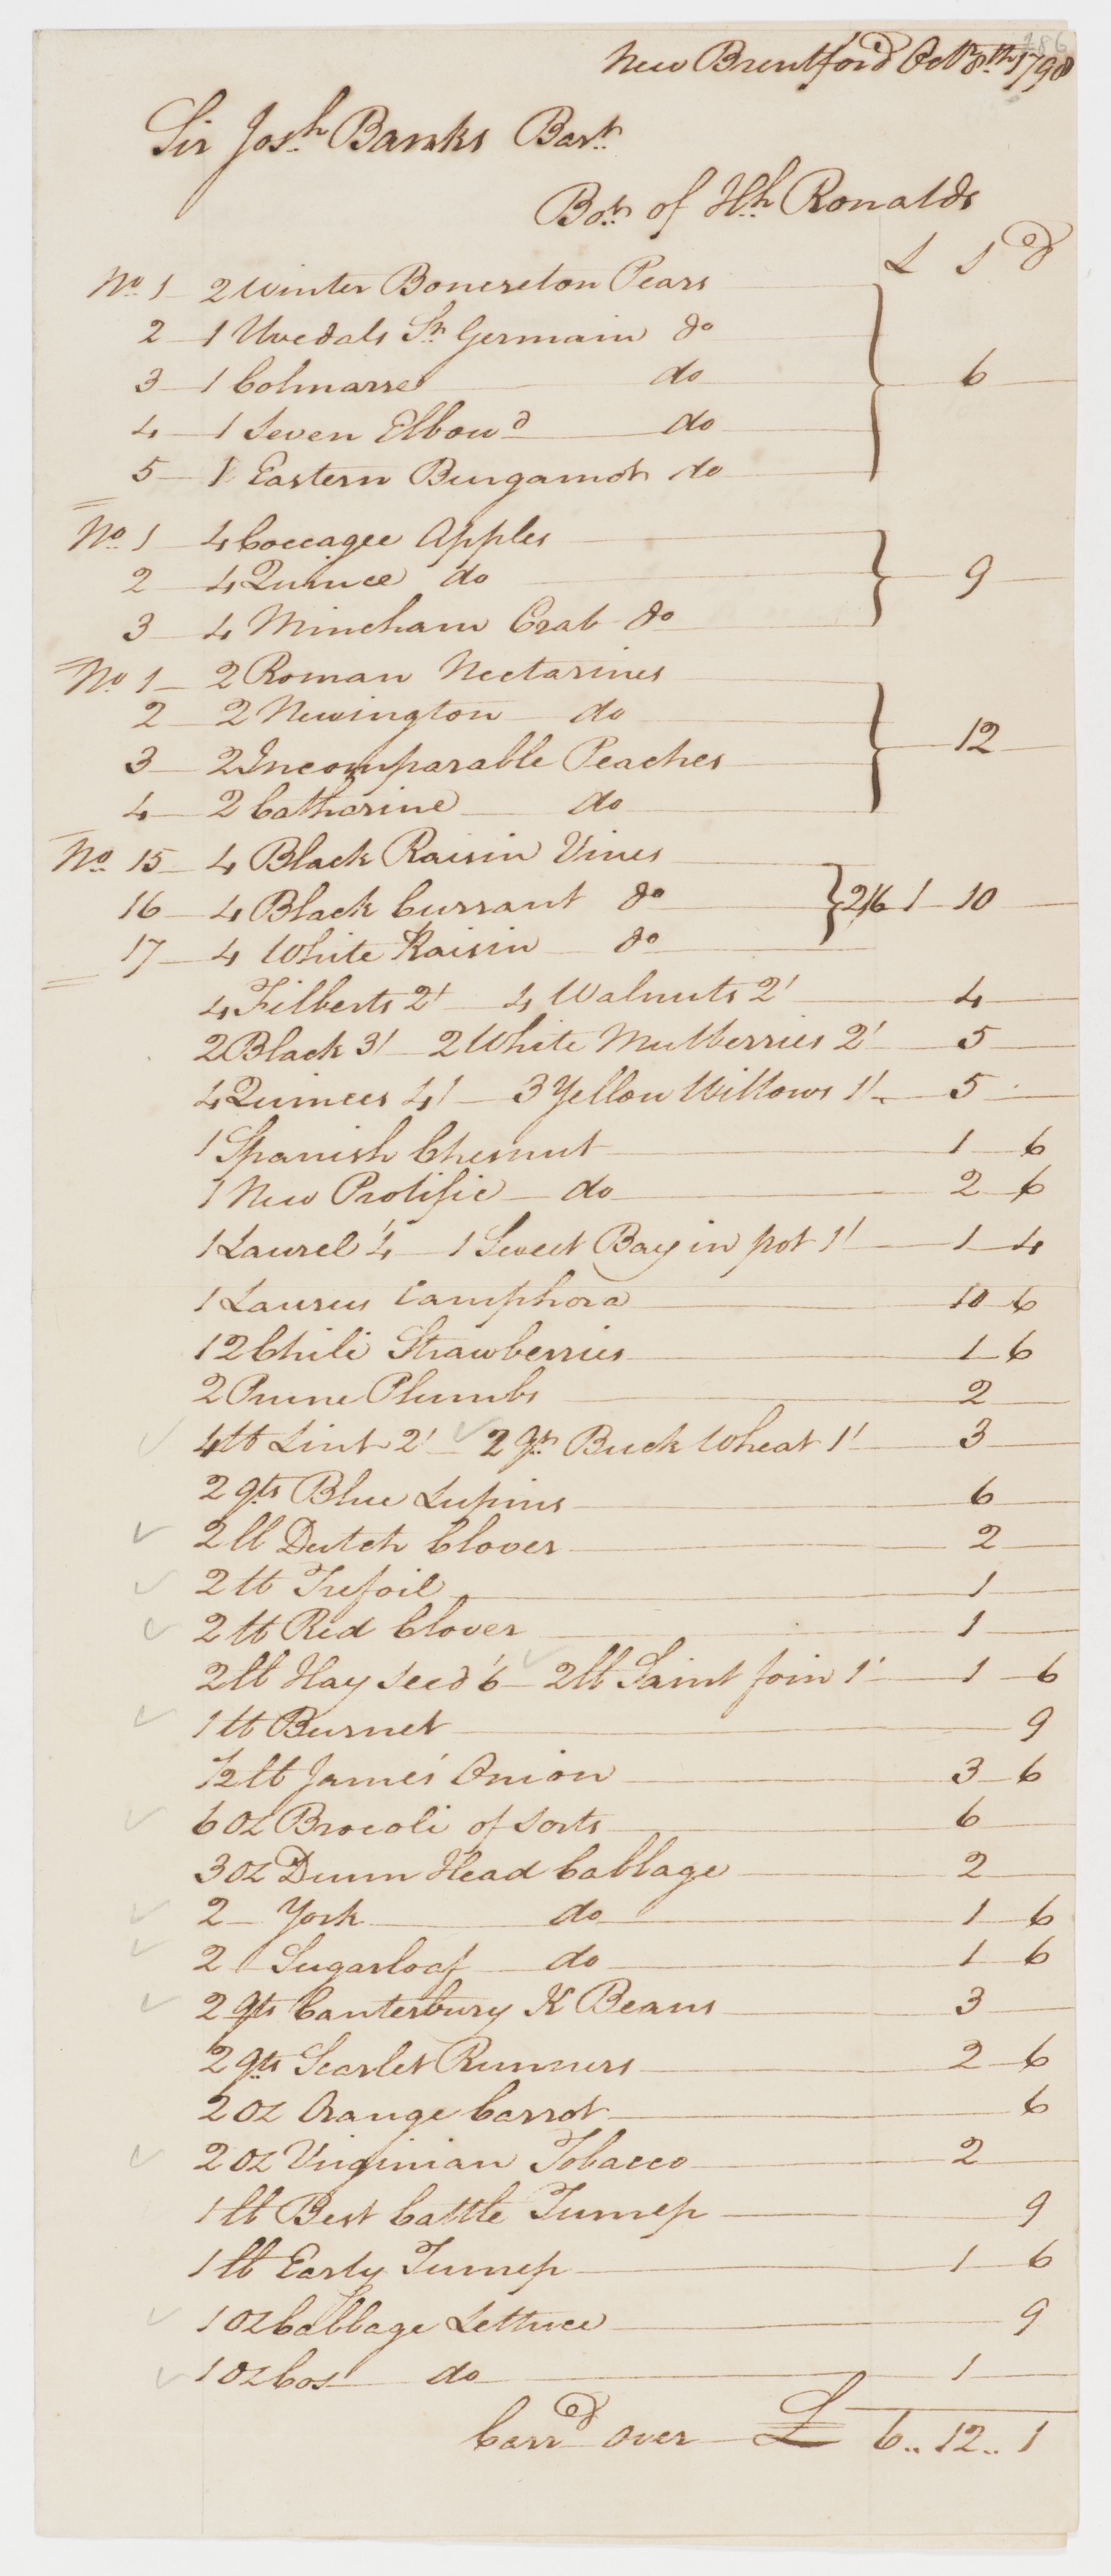 186
New Brentford Octr 8th 1798
Sir Josh Banks Bart
Bot of Hh Ronalds
L S d
No 1 2 Winter Boncreton Pears
2 1 Uvedals St Germain do
3 1 Colmarre do 6
4 1 Seven Elbowd do
5 1 Eastern Burgamot do
No 1 4 Coccagee Apples
2 4 Quince do 9
3 4 Mincham Crab do
No 1 2 Roman Nectarines
2 2 Newington do
3 2 Incomparable Peaches 12
4 2 Catharine do
No 15 4 Black Raisin Vines
16 4 Black Currant do 2/6 1 10
17 4 White Raisin do
4 Filberts 2/ 4 Walnuts 2/ 4
2 Black 3/ 2 White Mulberries 2/ 5
4 Quinces 4/ 3 Yellow Willows 1/ 5
1 Spanish Chesnut 1 6
1 New Prolific do 2 6
1 Laurel /4 1 Sweet Bay in pot 1/ 1 4
1 Laurus Camphora 10 6
12 Chili Strawberries 1 6
2 Prune Plumbs 2
4 lb Lint 2/ 2 qts Buck Wheat 1/ 3
2 qts Blue Lupins 6
2 lb Dutch Clover 2
2 lb Trefoil 1
2 lb Red Clover 1
2 lb Hay seed /6 2 lb Saint foin 1/ 1 6
1 lb Burnet 9
1/2 lb James' Onion 3 6
6 oz Brocoli of sorts 6
3 oz Drum Head Cabbage 2
2 York do 1 6
2 Sugarloaf do 1 6
2 qts Canterbury K Beans 3
2 qts Scarlet Runners 2 6
2 oz Orange Carrot 6
2 oz Virginian Tobacco 2
1 lb Best Cattle Turnep 9
1 lb Early Turnep 1 6
1 oz Cabbage Lettuce 9
1 oz Cos do 1
Carrd over £ 6 .. 12 .. 1